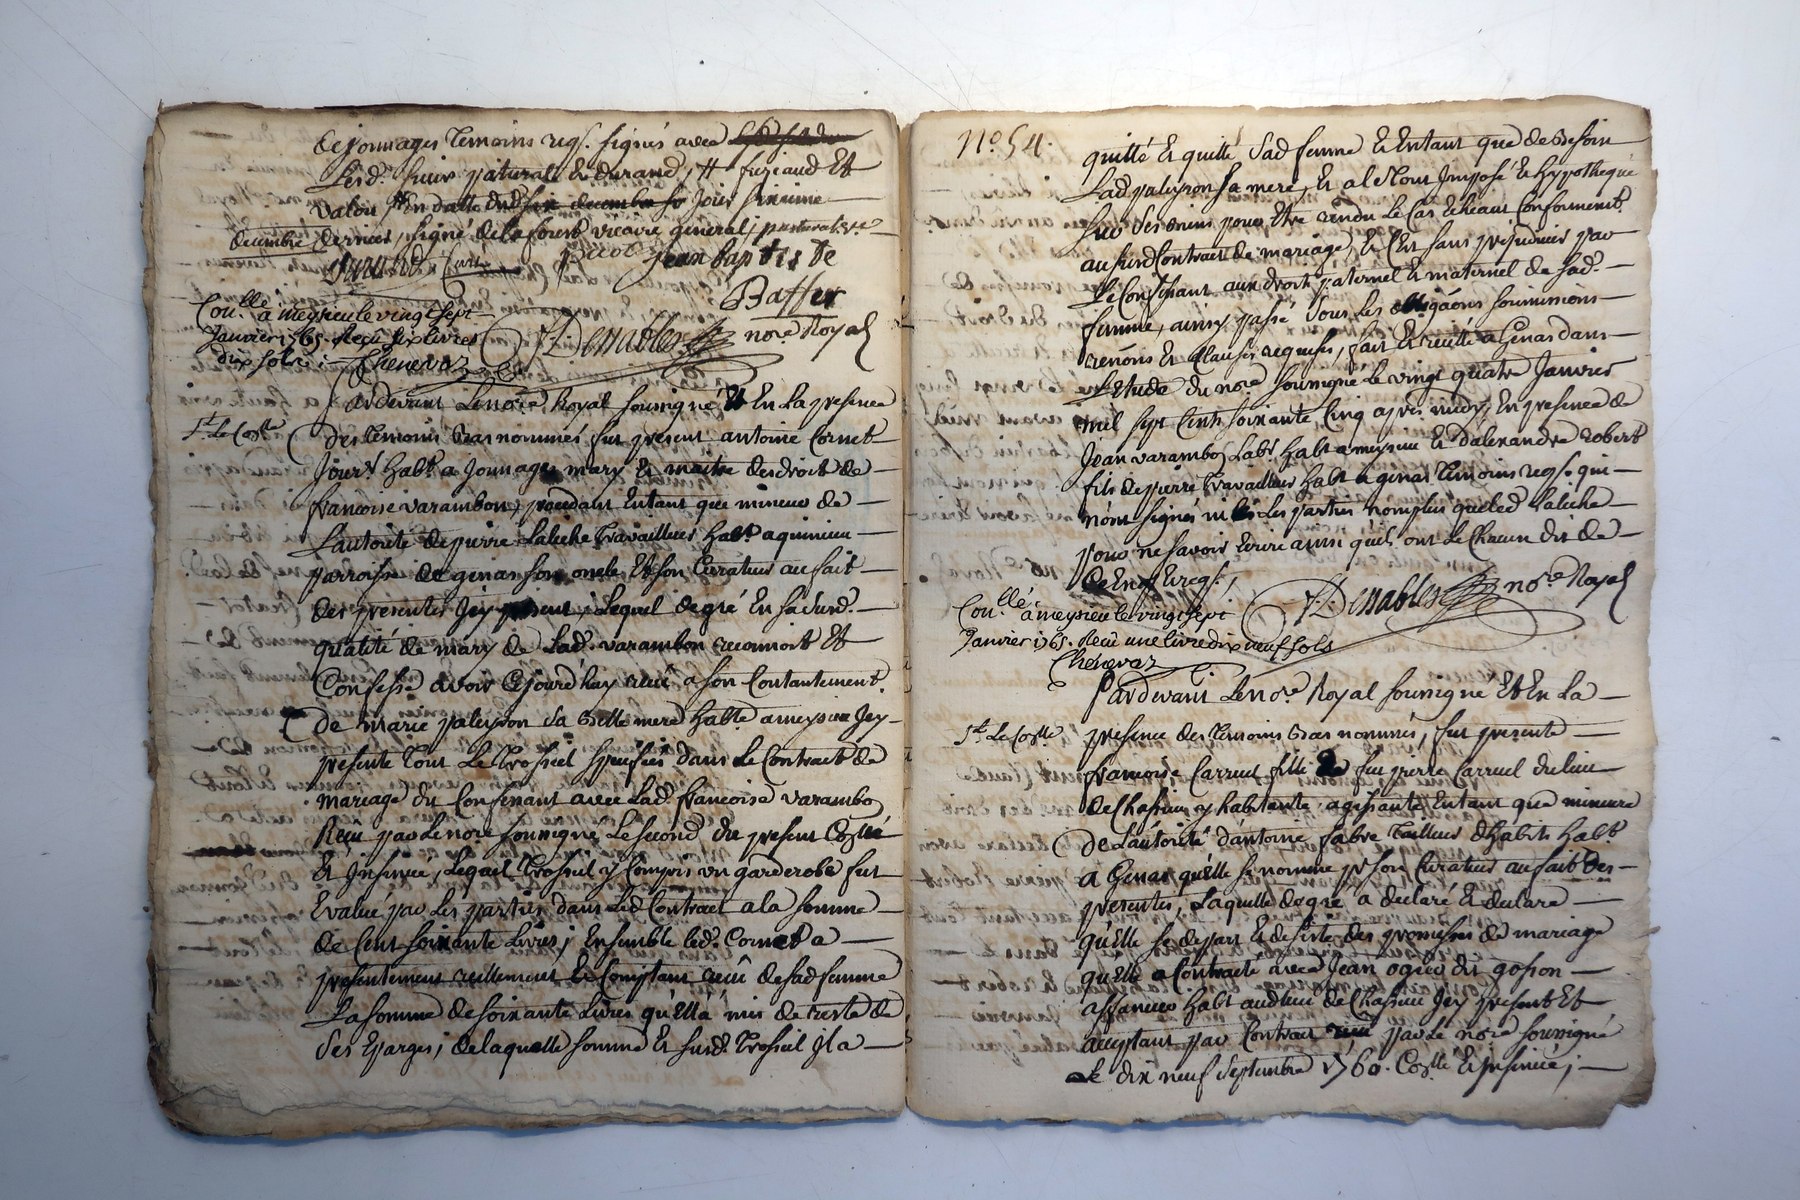 de jonnages temoins reqs. signés avec
Lesd. Sieur patural Et durand, # furiaud Et
Valous # En datte du six decembre so Jour sixieme
decembre dernier, signé delaforest vicaire general, patural Sre
Durand Curé jean baptiste
Baffer
Con.llé a meysieu le vingt sept
Janvier 1765. Recu six livres
dix sols : Chenevaz
J. Desnables nore Royal
Pardevant Le nore Royal soussigné Et En La presence
Sd. Le Coste
des temoins Bas nommés fut present antoine Cornet
Jour.r habt. a Jonnages mary Et maitre des droit de
francoise varambon, procedant Entant que mineur de
L'autorité de pierre Laleche travailleur habt. a quinieu
parroisse de genas son oncle Et son Curateur au fait
des presentes Jcy present, Lequel de gré En sa susd.
qualité de mary de Lad. varambon reconnoit Et
Confesse avoir Cejourd'huy recû a son Contantement.
de marie paleyron sa Belle mere habte. a meysieu Jcy
presente tout Le trossiel specifiés dans Le Contract de
mariage du Confessant avec Lad. francoise varambon
Recu par Le nore soussigné Le second du present Coñllé
Et Jnsinué, Lequel trossiel y Compris un garderobe fut
Evalué par Les parties dans Led. Contract a la somme
de Cent soixante Livres; Ensemble led. Cornet a
presentement reellement Et Comptant recû de sad. femme
La somme de soixante Livres qu'Ella mis de reste de
ses Epargés; de laquelle somme Et susd. trossiel Jl a
No. 54.
quitté Et quitte sad. femme Et Entant que de Besoin
Lad. paleyron sa mere, Et a le tout Jmposé Et hypothequé
sur ses Biens pour Etre rendu Le Cas Echeant Conformemt.
au susd. Contract de mariage, Et C'est sans prejudicier par
Le Confessant aux droits paternel Et maternel de sad.
femme, ainsy passé sous Les obligaõns soumissions
renõns Et Clauses requises, fait Et recitté a Genas dans
L'Etude du nore soussigné Le vingt quatre Janvier
mil sept Cents soixante Cinq apres midy, En presence de
Jean varambon Labr. habt. a meysieu Et d'alexandre robert
fils de pierre travailleur habt. a genas temoins reqs. qui
n'ont signés ni Les parties nomplus que led. Laleche
pour ne savoir Ecrire ainsi qu'els ont Le Chacun dit de
Ce Enqs. Et reqs.
J. Desnables nore Royal
Con.llé a meysieu le vingt sept
Janvier 1765. Recu une livre dix neuf sols
Chenevaz
Pardevant Le nore Royal soussigné Et En La
Sd. Le Coste
presence des temoins Bas nommés, fut presente
francoise Carruel fille de feu pierre Carruel du lieu
de Chassieu y habitante, agissante Entant que mineure
de L'autorité d'antoine fabre tailleur d'habits habt.
a Genas qu'elle se nomme pr son Curateur au fait des
presentes, Laquelle de gré a declaré Et declare
qu'elle se depart Et desiste des promesses de mariage
qu'elle a Contracté avec Jean ogier dit goson
affaneur habt. aud. lieu de Chassieu Jcy present Et
acceptant par Contract recu par Le nore soussigné
Le dix neuf septembre 1760. Coñllé Et Jnsinué;